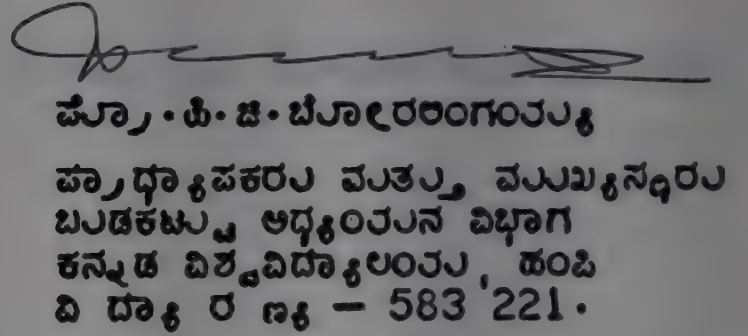 ಪ್ರೊ.ಹಿ.ಚಿ.ಬೋರಲಿಂಗಯ್ಯ
ಪ್ರಾಧ್ಯಾಪಕರು ಮತ್ತು ಮುಖ್ಯಸ್ಥರು
ಬುಡಕಟ್ಟು ಅಧ್ಯಯನ ವಿಭಾಗ
ಕನ್ನಡ ವಿಶ್ವವಿದ್ಯಾಲಯ, ಹಂಪಿ
ವಿ ದ್ಯಾ ರ ಣ್ಯ - 583 221.